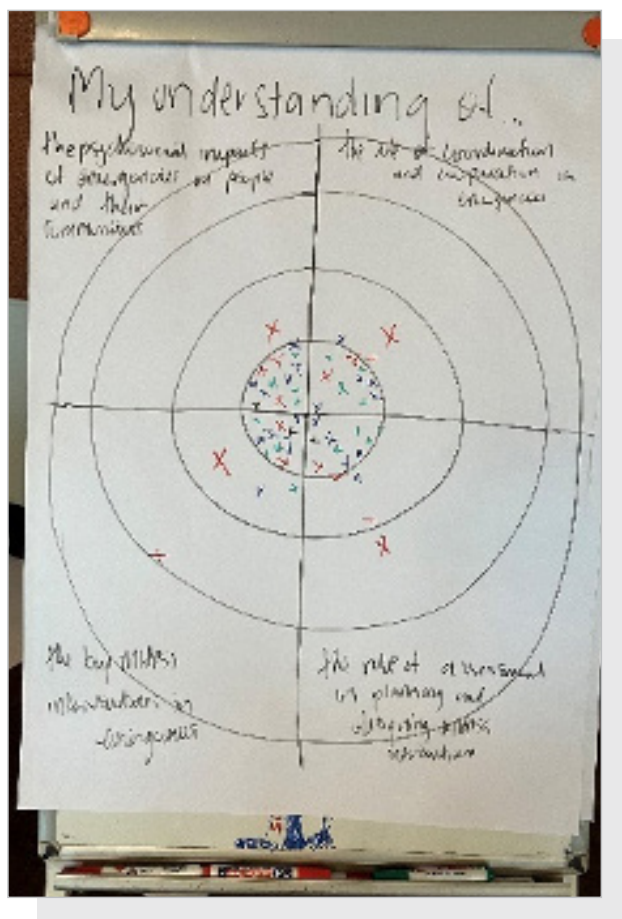 My understanding of...
the psychosocial impacts
of emergencies on people
and their
communities
the role of coordination
and cooperation in
emergencies
the key MHPSS
interventions in
emergencies
the role of assessment
in planning and
designing MHPSS
interventions